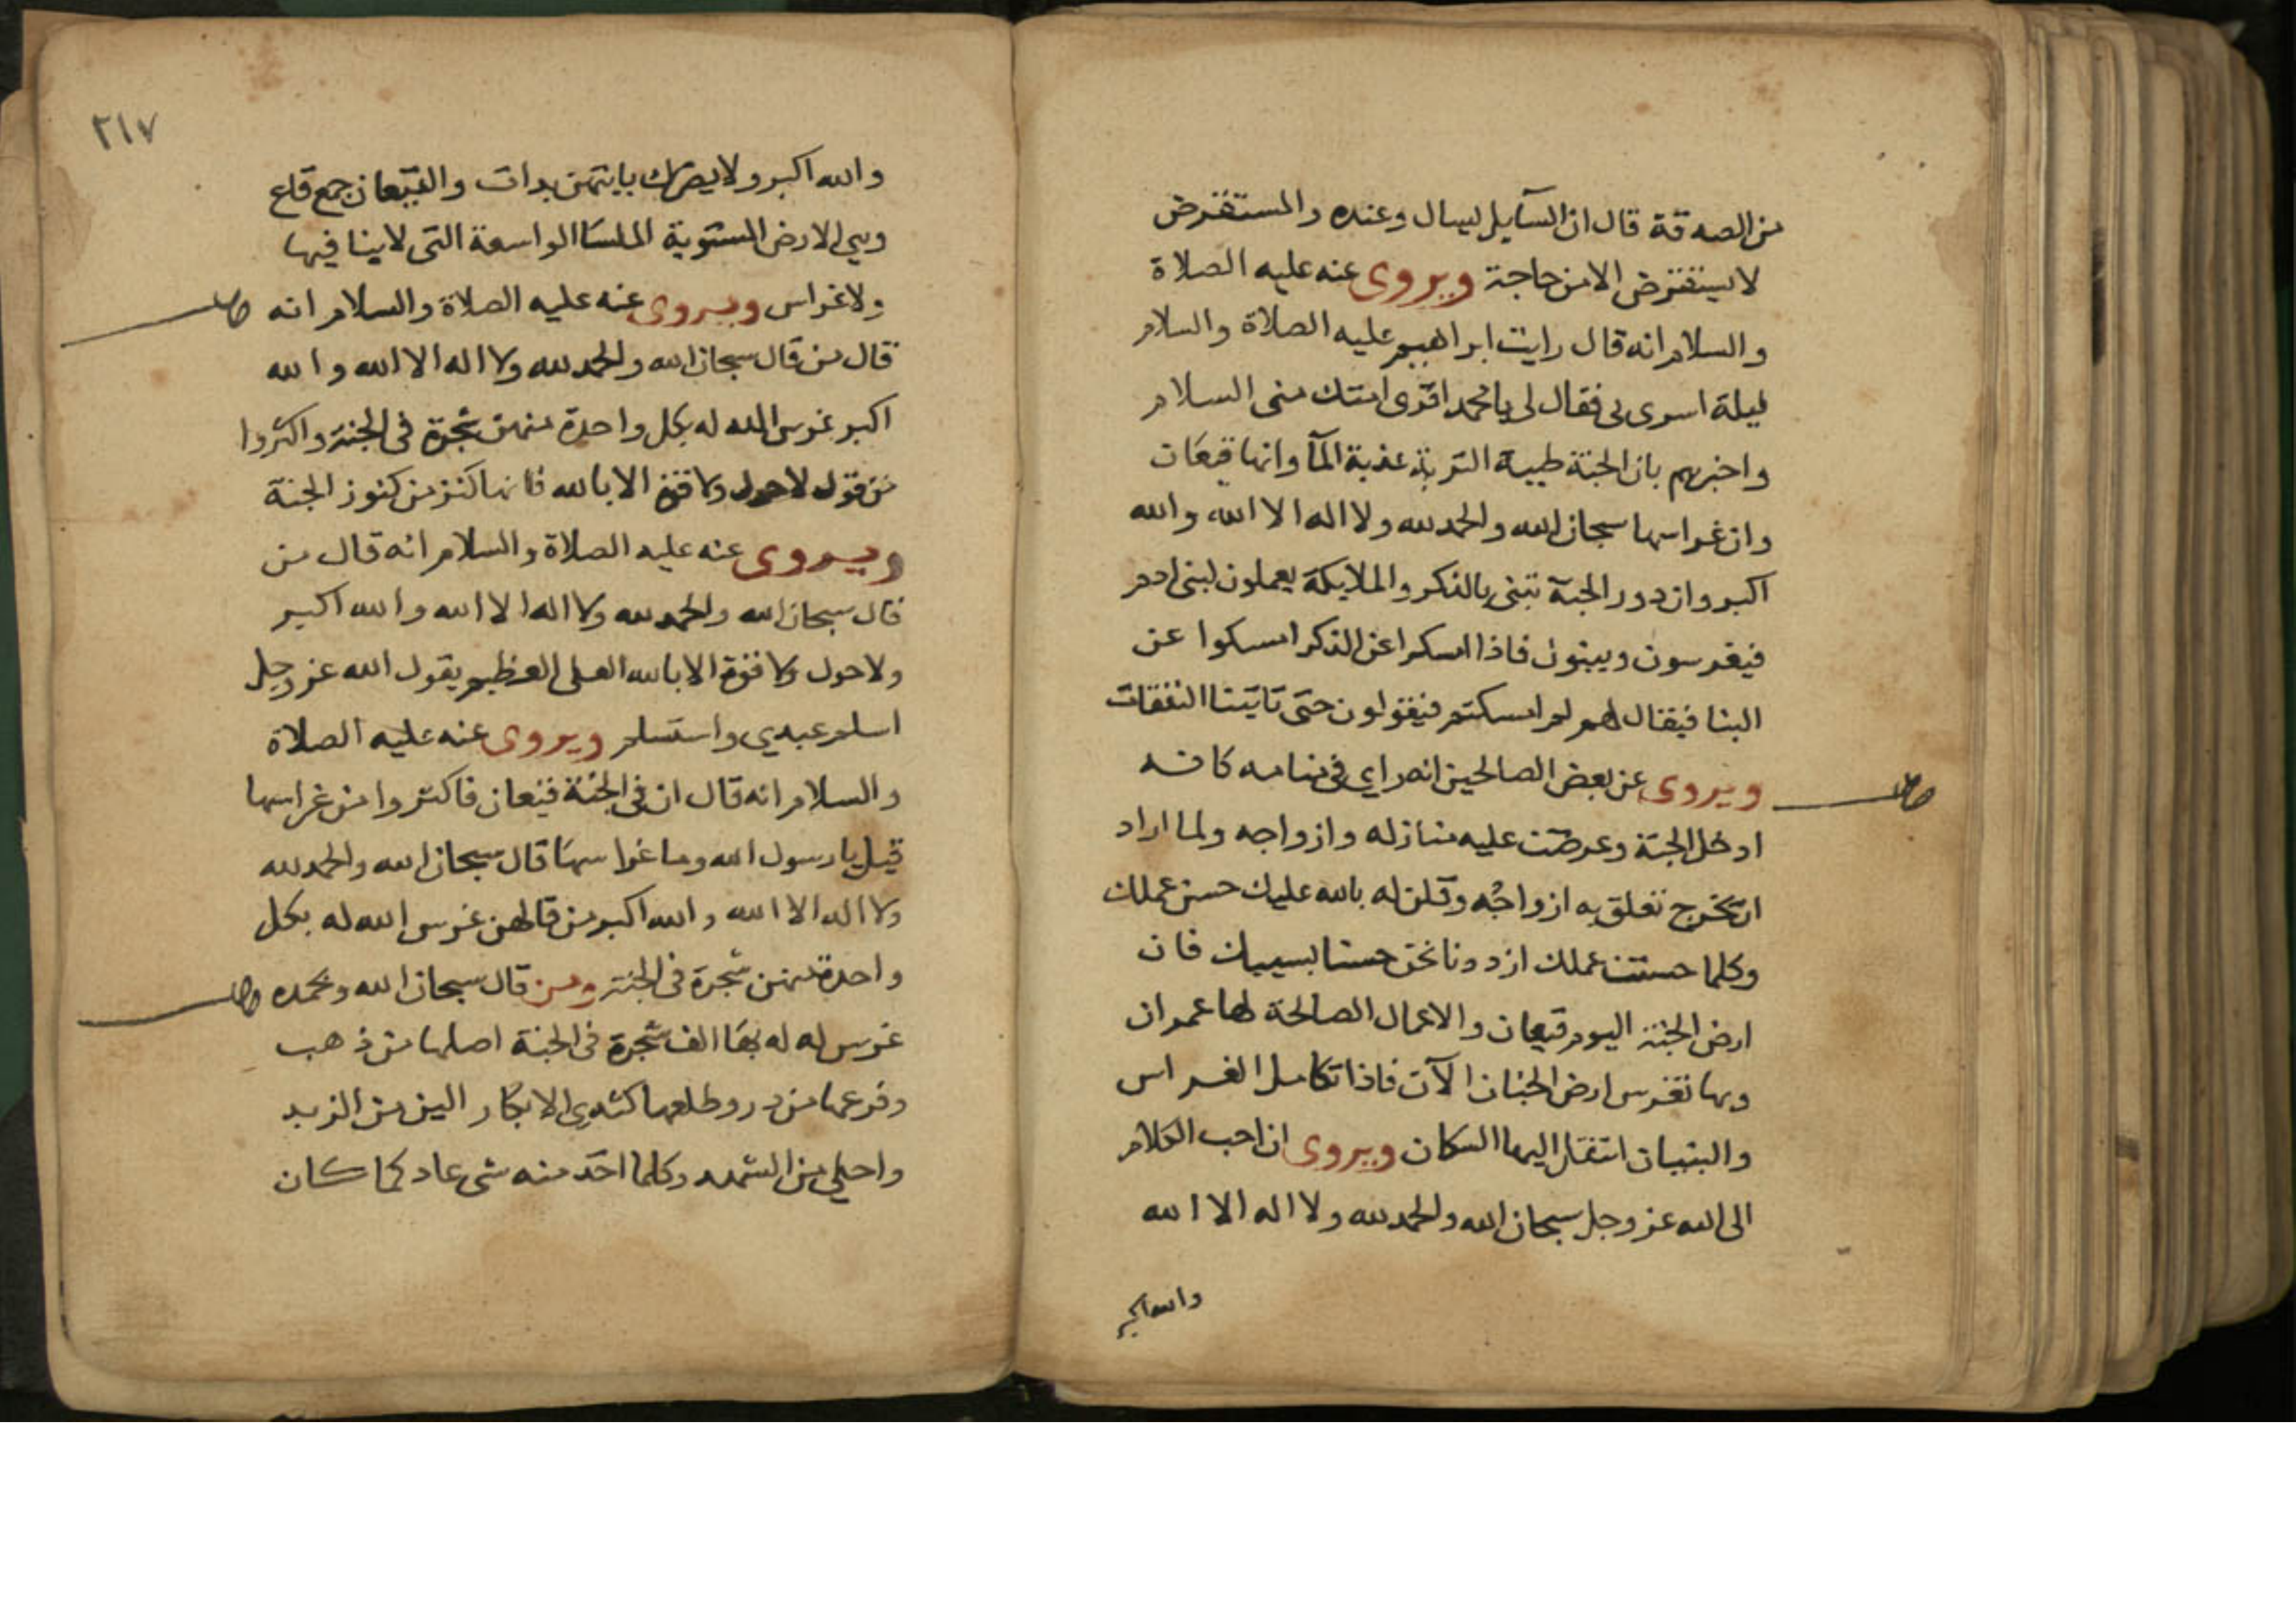 من الصدقة قال ان السآيل ليسال وعنده والمستقرض
لا يستقرض الا من حاجة ويروى عنه عليه الصلاة
والسلام انه قال رايت ابراهيم عليه الصلاة والسلام
ليلة اسرى بى فقال لى يا محمد اقرى امتك منى السلام
واخبرهم بان الجنة طيبة التربة عذبة المآ وانها قيعان
وان غراسها سبحان الله والحمد لله ولا اله الا الله والله
اكبر وان دور الجنة تبنى بالذكر والملايكة يعملون لبنى ادم
فيغرسون ويبنون فاذا امسكوا عن الذكر امسكوا عن
البنا فيقال لهم لم امسكتم فيقولون حتى تاتينا النفقات
ويروى عن بعض الصالحين انه راي فى منامه كانه
ادخل الجنة وعرضت عليه منازله وازواجه ولما اراد
ان يخرج تعلق به ازواجه وقلن له بالله عليك حسن عملك
وكلما حسنت عملك ازددنا نحن حسنا بسببك فان
ارض الجنة اليوم قيعان والاعمال الصالحة لها عمران
وبها تغرس ارض الجنان الآن فاذا تكامل الغراس
والبنيان انتقل اليها السكان ويروى ان احب الكلام
الى الله عز وجل سبحان الله والحمد لله ولا اله الا الله
والله اكبر
٢١٧
والله اكبر ولا يضرك بايتهن بدات والقيعان جمع قاع
وهي الارض المستوية الملسا الواسعة التى لا بنا فيها
ولا غراس ويروى عنه عليه الصلاة والسلام انه
قال من قال سبحان الله والحمد لله ولا اله الا الله والله
اكبر غرس الله له بكل واحدة منهن شجرة فى الجنة واكثروا
من قول لا حول ولا قوة الا بالله فانها كنز من كنوز الجنة
ويروى عنه عليه الصلاة والسلام انه قال من
قال سبحان الله والحمد لله ولا اله الا الله والله اكبر
ولا حول ولا قوة الا بالله العلى العظيم يقول الله عز وجل
اسلم عبدي واستسلم ويروى عنه عليه الصلاة
والسلام انه قال ان فى الجنة قيعان فاكثروا من غراسها
قيل يا رسول الله وما غراسها قال سبحان الله والحمد لله
ولا اله الا الله والله اكبر من قالهن غرس الله له بكل
واحدة منهن شجرة فى الجنة ومن قال سبحان الله وبحمده
غرس له له بها الف شجرة فى الجنة اصلها من ذهب
وفرعها من در وطلعها كثدى الابكار الين من الزبد
واحلي من الشهد وكلما اخد منه شى عاد كما كان